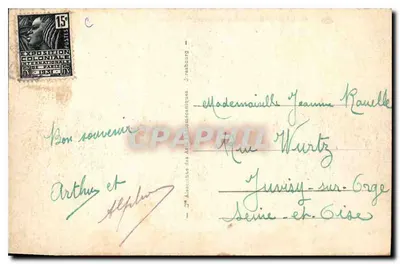 15c
POSTES
EXPOSITION
COLONIALE
INTERNATIONALE
PARIS 1931
c
Bon souvenir
Arthur et
Alphonse
Mademoiselle Jeanne
Rue Wurtz
Juvisy-sur-Orge
Seine-et-Oise
CPARAMA.COM